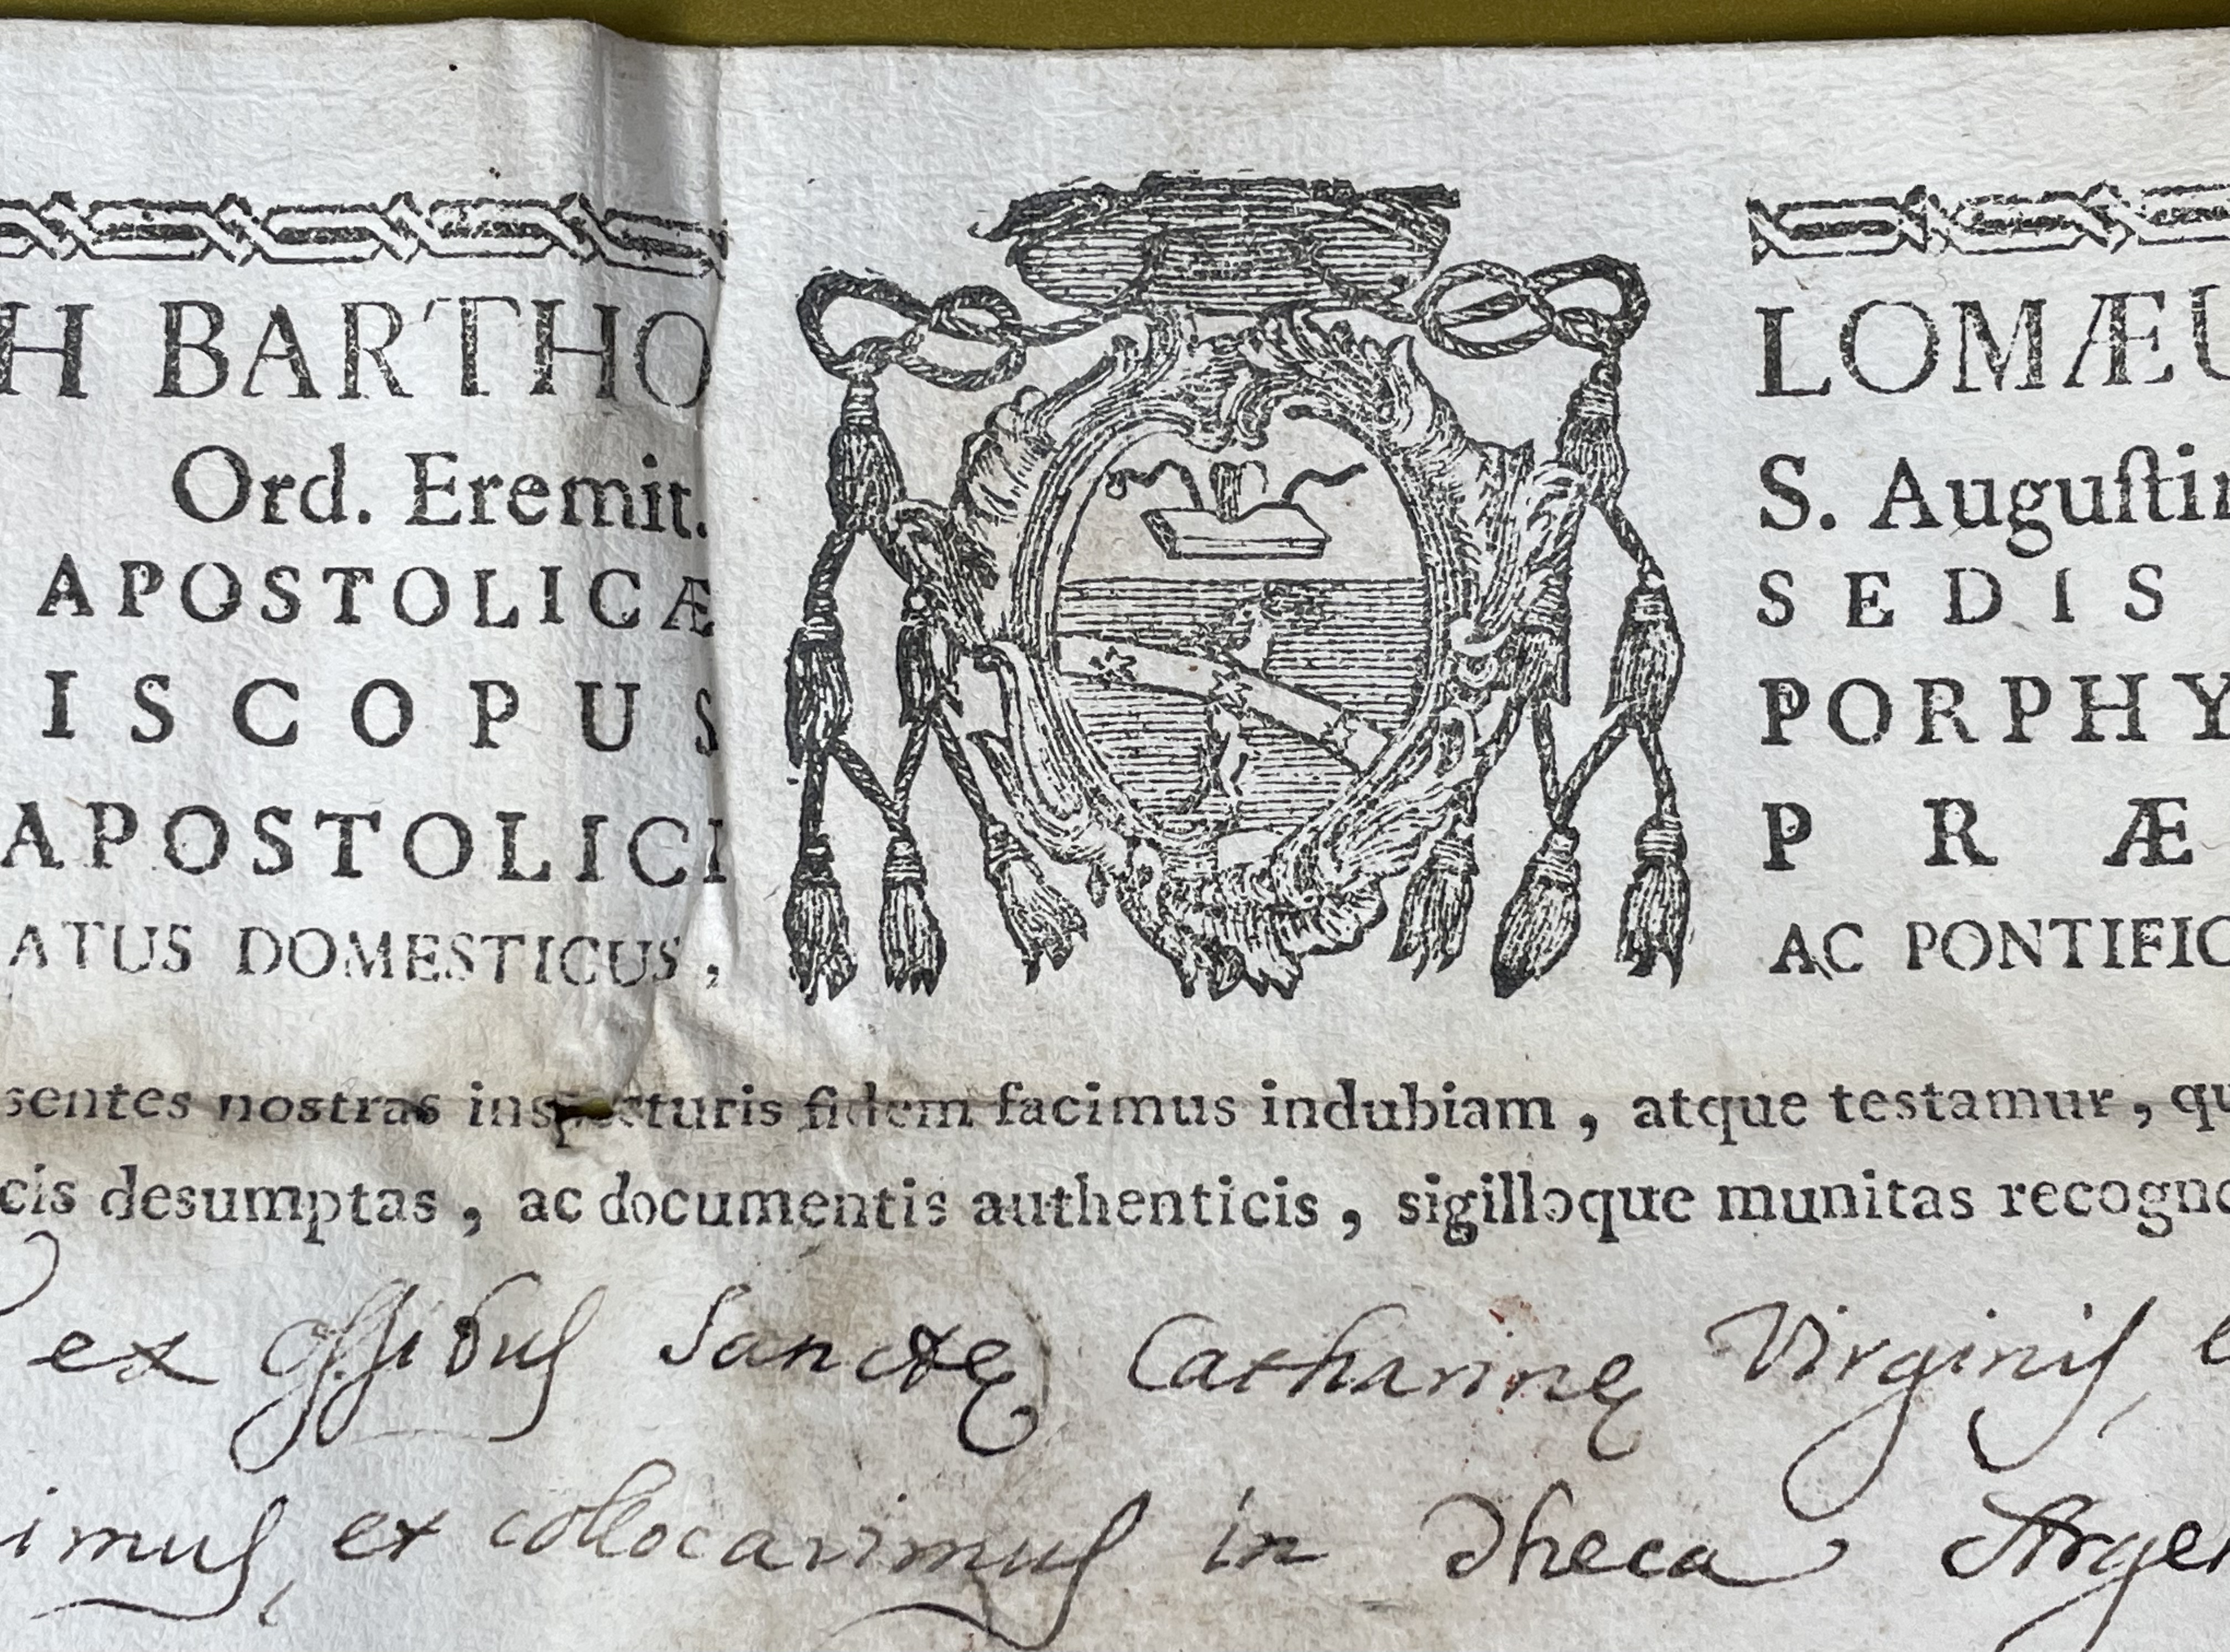 H BARTHO LOMÆU
Ord. Eremit. S. Auguſtin
APOSTOLICÆ SEDIS
ISCOPUS PORPHY
APOSTOLICI PRÆ
ATUS DOMESTICUS, AC PONTIFIC
sentes nostras inspecturis fidem facimus indubiam, atque testamur, qu
cis desumptas, ac documentis authenticis, sigilloque munitas recogno
ex ossibus Sanctę Catharinę Virginis,
imus, et collocavimus in Theca Argen